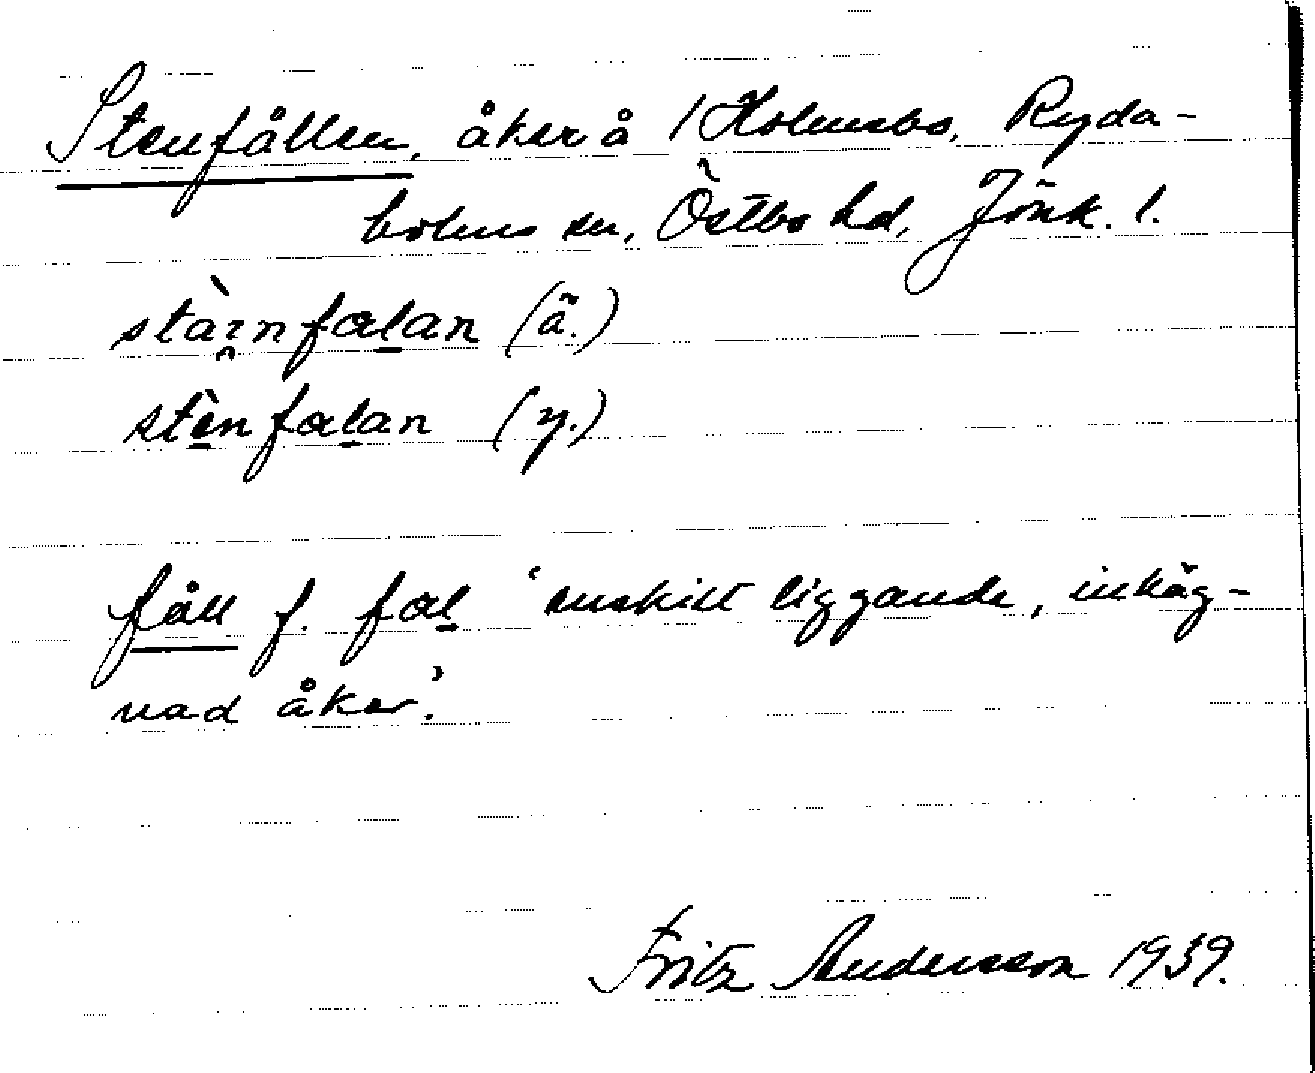 Stenfållen, åker å /Holmsbo, Ryda-
bolms sn, Östbo hd, Jönk. l.
stàɪ̯nfalan (ä.)
stènfalan (y.)
fåll f. fal 'enskilt liggande, inhäg-
nad åker.'
Fritz Andersson 1939.